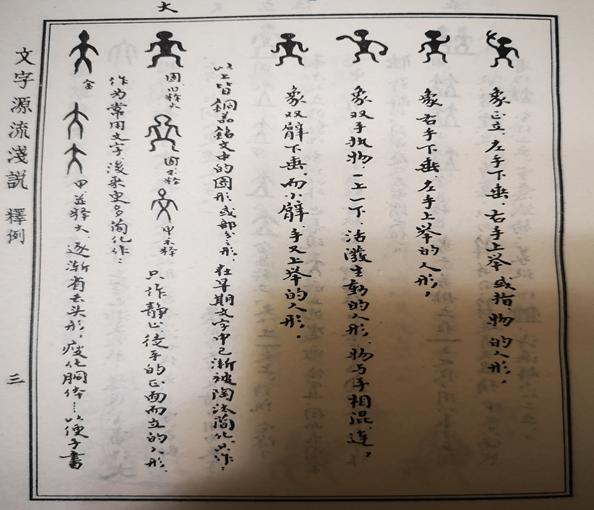 象正立,左手下垂,右手上举或指物的人形,
象右手下垂,左手上举的人形,
象双手执物,一上一下,活泼生動的人形,物与手相混連,
象双臂下垂,而小臂手又上举的人形,
以上皆銅器銘文中的图形或部分形,在早期文字中已漸被淘汰简化只作,
图 甲 只作静止徒手的正面而立的人形,
作为常用文字,後来更多简化作:
金 甲 釋大,逐渐省去头形,瘦化胴体…以便手書
大
文字源流淺説 釋例
三